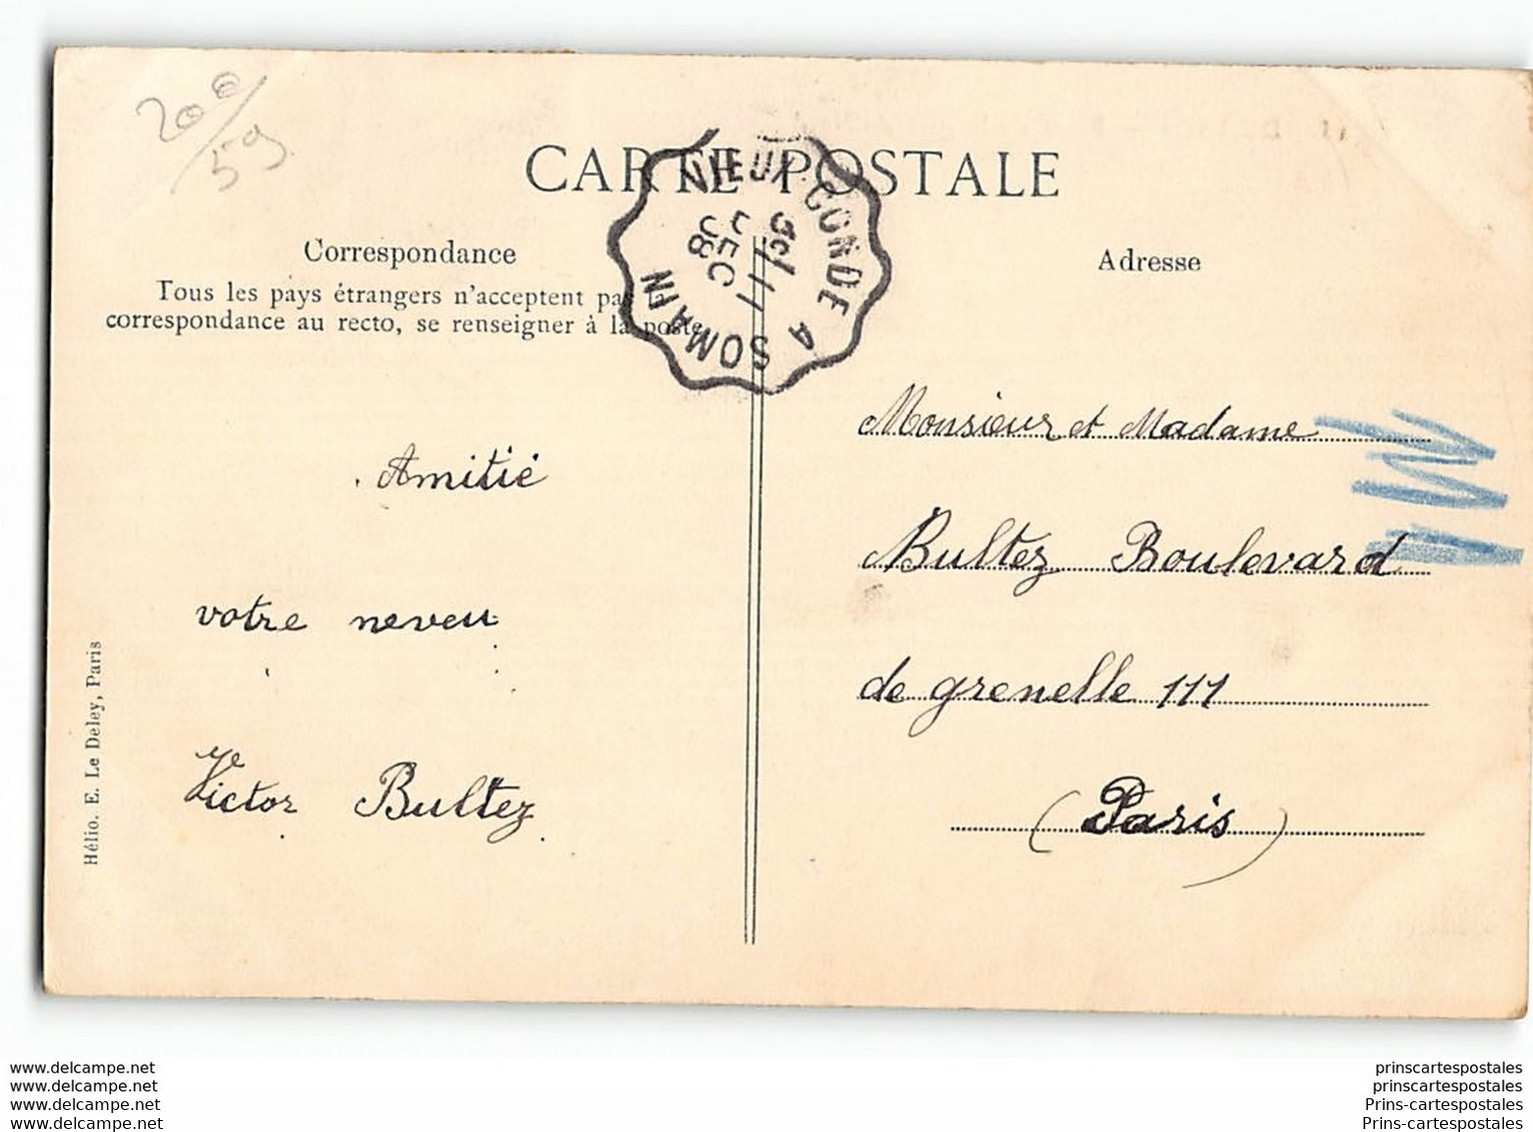 200/59
CARTE POSTALE
VIEUX-CONDE A SOMAIN
11
DEC
08
Correspondance
Tous les pays étrangers n'acceptent pas
correspondance au recto, se renseigner à la poste
Amitié
votre neveu
Victor Bultez
Hélio. E. Le Deley, Paris
Adresse
Monsieur et Madame
Bultez Boulevard
de grenelle 111
(Paris)
www.delcampe.net
www.delcampe.net
www.delcampe.net
www.delcampe.net
prinscartespostales
prinscartespostales
Prins-cartespostales
Prins-cartespostales